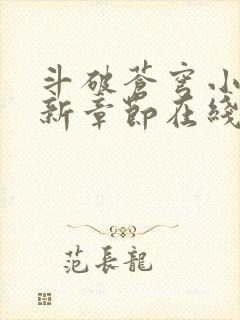 斗破蒼穹小
新章節在綫
范長龍